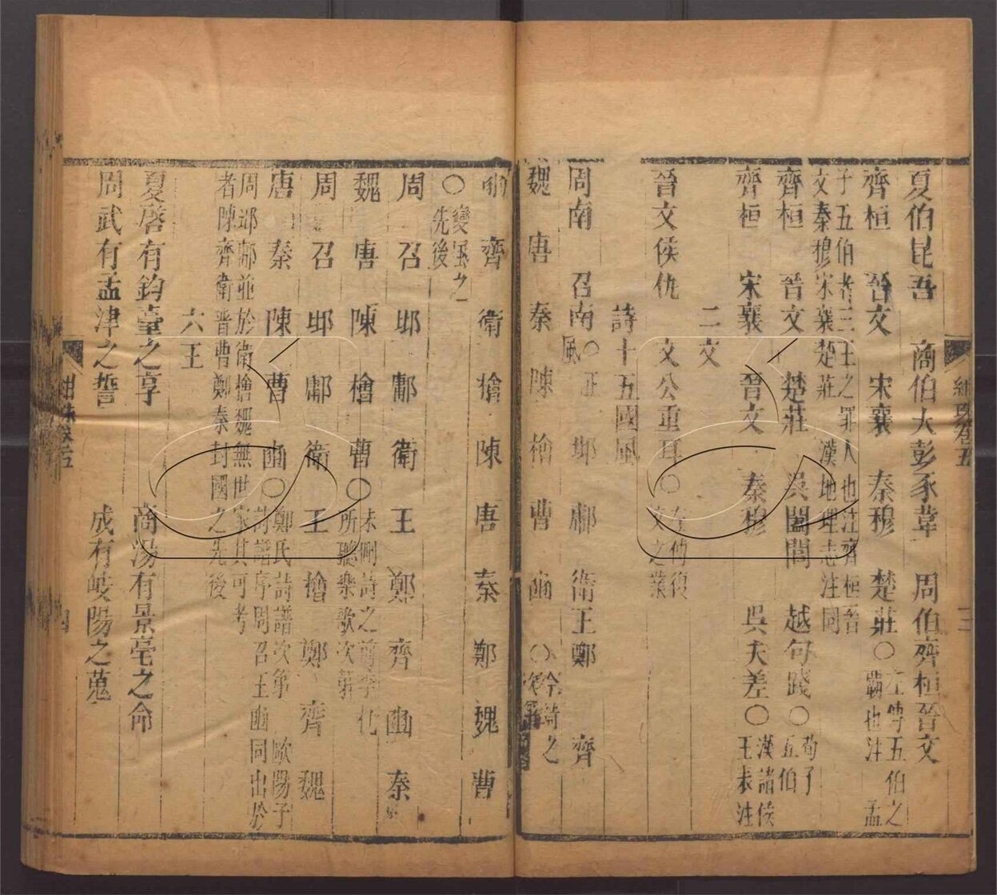 夏伯昆吾 商伯大彭豕韋 周伯齊桓晉文
齊桓 晉文 宋襄 秦穆 楚莊○左傳五伯之
霸也注孟
子五伯者三王之罪人也注齊桓晉
文秦穆宋襄楚莊 漢地理志注同
齊桓 晉文 楚莊 吳闔閭 越句踐○荀子
五伯
齊桓 宋襄 晉文 秦穆 吳夫差○漢諸侯
王表注
二文
晉文侯仇 文公重耳○左傳復
文之業
詩十五國風
周南 召南○正
風 邶 鄘 衛王鄭 齊
魏 唐 秦 陳 檜 曹 豳○今詩之
次第
豳 齊 衛 檜 陳 唐 秦 鄭 魏 曹
○變風之
先後
周 召 邶 鄘 衛 王 鄭 齊 豳 秦
魏 唐 陳 檜 曹○未刪詩之前季札
所聽樂歌次第
周 召 邶 鄘 衛 王 檜 鄭 齊 魏
唐 秦 陳 曹 豳○鄭氏詩譜次第 歐陽子
詩譜序周召王豳同出於
周邶鄘並於衛檜魏無世家其可考
者陳齊衛晉曹鄭秦封國之先後
六王
夏啓有鈞臺之享 商湯有景亳之命
周武有孟津之誓 成有岐陽之蒐
紺珠卷五
三
四